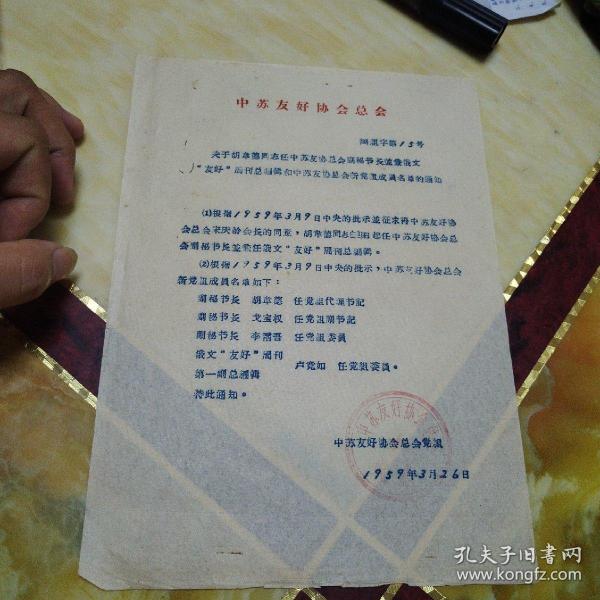 中苏友好协会总会
字第15号
关于胡韋德同志任中苏友协总会副秘书长並兼俄文
“友好”周刊总编辑和中苏友协总会新党组成员名单的通知
(1)根据1959年3月9日中央的批示並征求得中苏友好协
会总会宋庆龄会长的同意，胡韋德同志任中苏友好协会总
会副秘书长並兼任俄文“友好”周刊总编辑。
(2)根据1959年3月9日中央的批示，中苏友好协会总会
新党组成员名单如下：
副秘书长 胡韋德 任党组代理书记
副秘书长 戈宝权 任党组副书记
副秘书长 李霁吾 任党组委员
俄文“友好”周刊
第一副总编辑
卢竞如 任党组委员。
特此通知。
中苏友好协会总会党组
1959年3月26日
中苏友好协会
孔夫子旧书网
www.kongfz.com